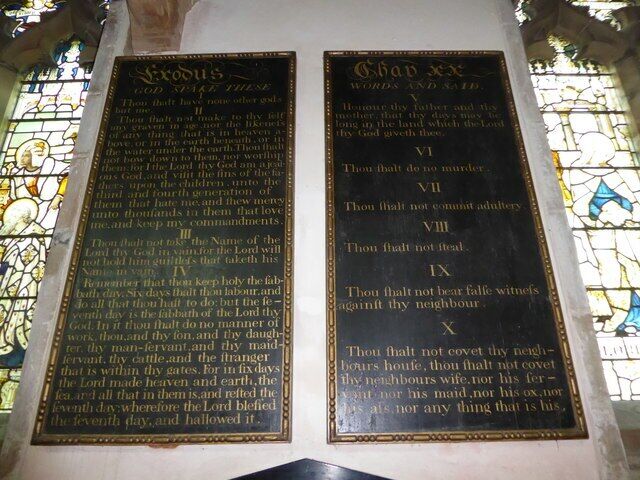 Exodus
GOD SPAKE THESE
Thou ſhalt have none other gods
but me.
II
Thou ſhalt not make to thy ſelf
any graven image, nor the likeneſs
of any thing that is in heaven a-
bove, or in the earth beneath, or in
the water under the earth. Thou ſhalt
not bow down to them, nor worſhip
them: for I the Lord thy God am a jeal-
ous God, and viſit the ſins of the fa-
thers upon the children, unto the
third and fourth generation of
them that hate me, and ſhew mercy
unto thouſands in them that love
me, and keep my commandments.
III
Thou ſhalt not take the Name of the
Lord thy God in vain, for the Lord will
not hold him guiltleſs that taketh his
Name in vain.
IV
Remember that thou keep holy the ſab-
bath day. Six days ſhalt thou labour, and
do all that thou haſt to do: but the ſe-
venth day is the ſabbath of the Lord thy
God. In it thou ſhalt do no manner of
work, thou, and thy ſon, and thy daugh-
ter, thy man-ſervant, and thy maid-
ſervant, thy cattle, and the ſtranger
that is within thy gates. For in ſix days
the Lord made heaven and earth, the
ſea, and all that in them is, and reſted the
ſeventh day; wherefore the Lord bleſſed
the ſeventh day, and hallowed it.
Chap XX
WORDS AND SAID.
V
Honour thy father and thy
mother, that thy days may be
long in the land which the Lord
thy God giveth thee.
VI
Thou ſhalt do no murder.
VII
Thou ſhalt not commit adultery.
VIII
Thou ſhalt not ſteal.
IX
Thou ſhalt not bear falſe witneſs
againſt thy neighbour.
X
Thou ſhalt not covet thy neigh-
bours houſe, thou ſhalt not covet
thy neighbours wife, nor his ſer-
vant, nor his maid, nor his ox, nor
his aſs, nor any thing that is his.